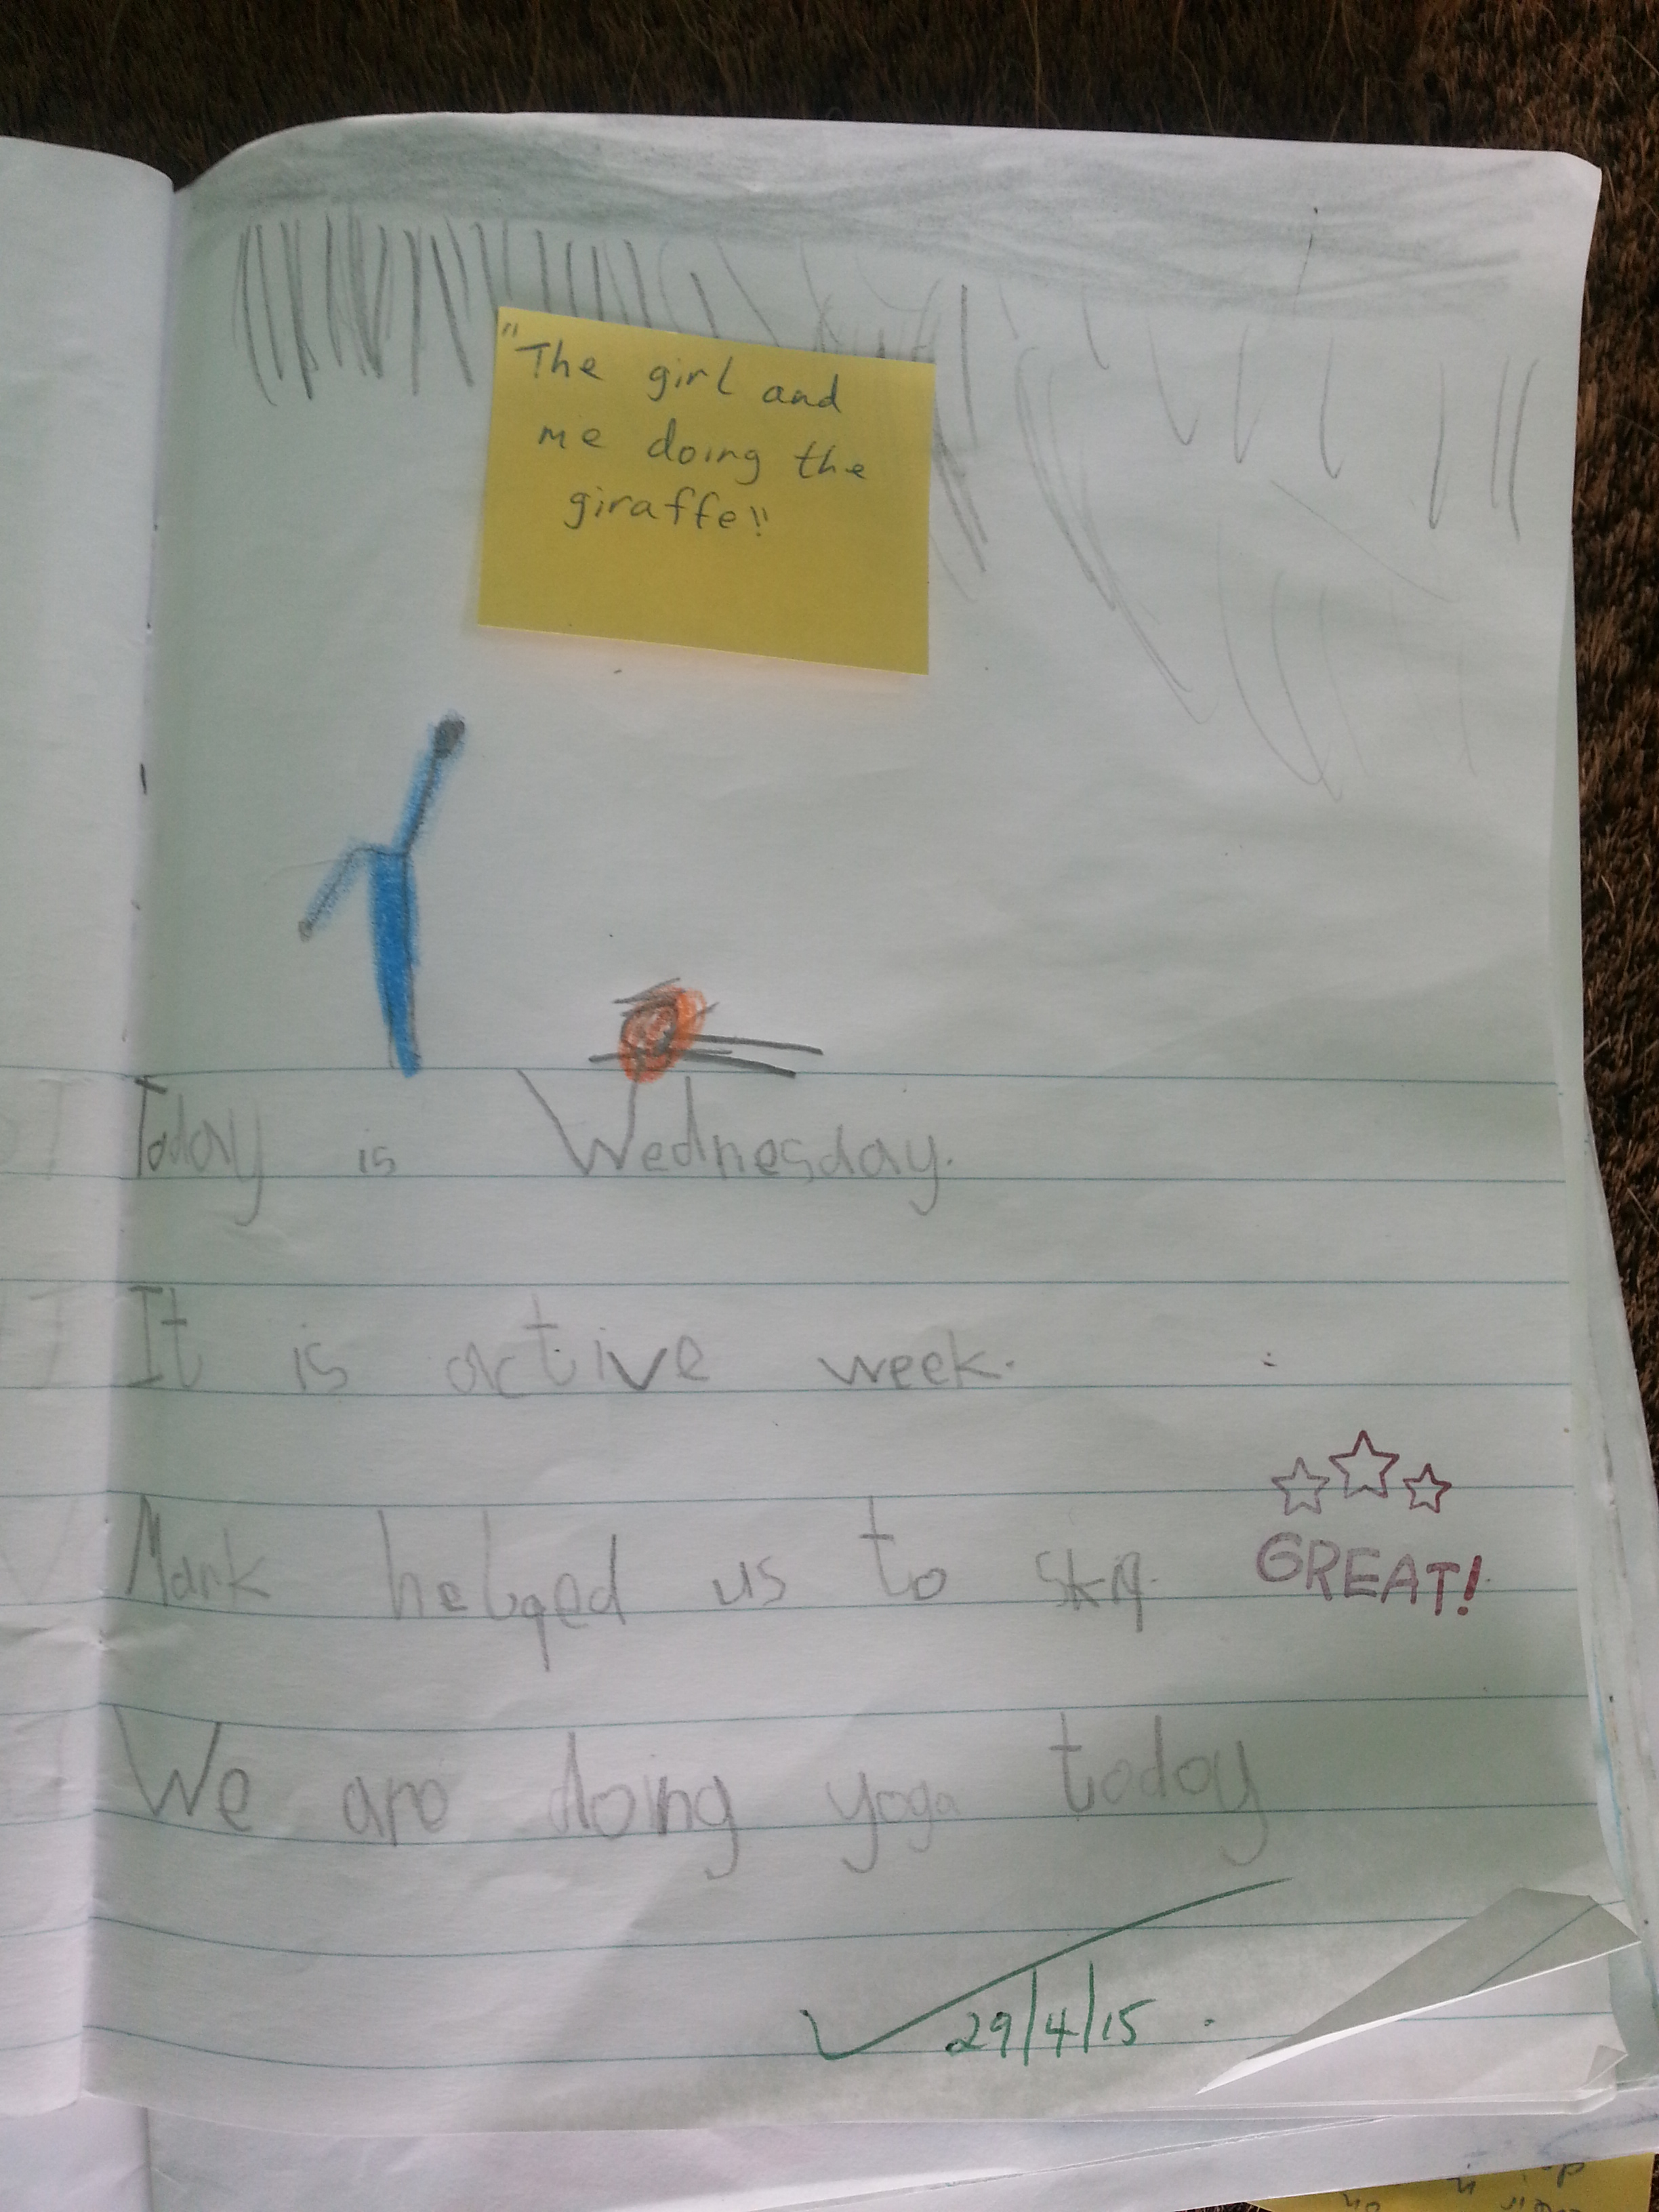 "The girl and
me doing the
giraffe!!
Today is Wednesday.
It is active week.
Mark helped us to skip.
GREAT!
We are doing yoga today
29/4/15